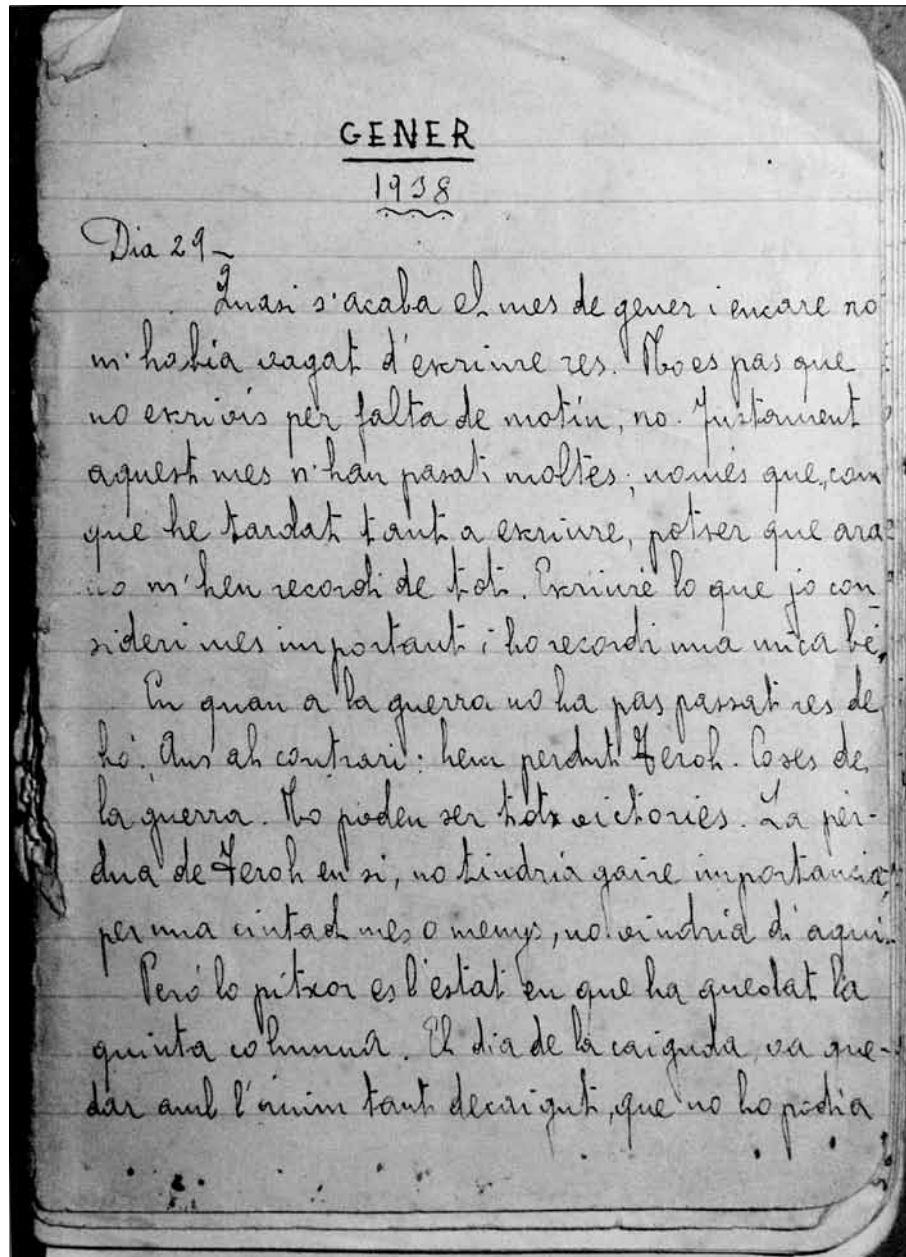 GENER
1938
Dia 29-
Quasi s'acaba el mes de gener i encare no
m'habia vagat d'escriure res. No es pas que
no escrivís per falta de motiu, no. Justament
aquest mes n'han pasat moltes; només que, com
que he tardat tant a escriure, potser que ara
no m'heu recordi de tot. Escriuré lo que jo con
sideri mes important i ho recordi una mica bé.
En quan a la guerra no ha pas passat res de
bó. Ans al contrari: hem perdut Terol. Coses de
la guerra. No poden ser tots victories. La pèr-
dua de Terol en si, no tindria gaire importancia,
per una ciutad mes o menys, no vindria d'aqui.
Peró lo pitxor es l'estat en que ha quedat la
quinta columna. El dia de la caiguda, va que-
dar amb l'ànim tant decaigut, que no ho podia